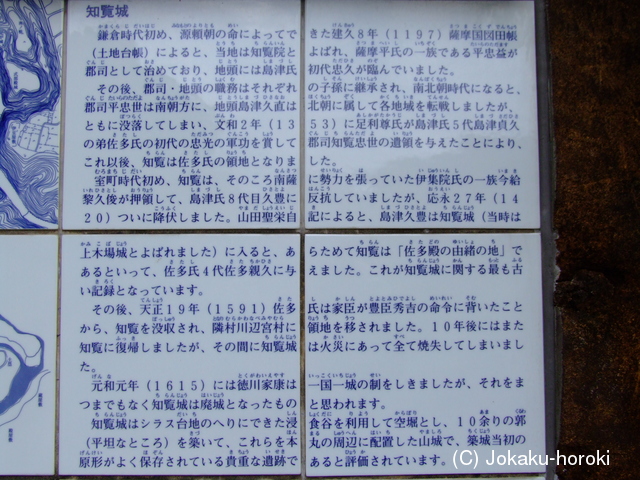 知覧城
鎌倉時代初め、源頼朝の命によってできた建久8年(1197)薩摩国図田帳
(土地台帳)によると、当地は知覧院とよばれ、薩摩平氏の一族である平忠益が
郡司として治めており、地頭には島津氏初代忠久が臨んでいました。
その後、郡司・地頭の職務はそれぞれの子孫に継承され、南北朝時代になると、
郡司平忠世は南朝方に、地頭島津久直は北朝に属して各地域を転戦しましたが、
ともに没落してしまい、文和2年(1353)に足利尊氏が島津氏5代島津貞久
の弟佐多氏の初代の忠光の軍功を賞して郡司知覧忠世の遺領を与えたことにより、
これ以後、知覧は佐多氏の領地となりました。
室町時代初め、知覧は、そのころ南薩に勢力を張っていた伊集院氏の一族今給
黎久俊が押領して、島津氏8代目久豊に反抗していましたが、応永27年(14
20)ついに降伏しました。山田聖栄自記によると、島津久豊は知覧城(当時は
上木場城とよばれました)に入ると、あらためて知覧は「佐多殿の由緒の地」で
あるといって、佐多氏4代佐多親久に与えました。これが知覧城に関する最も古
い記録となっています。
その後、天正19年(1591)佐多氏は家臣が豊臣秀吉の命令に背いたこと
から、知覧を没収され、隣村川辺宮村に領地を移されました。10年後にはまた
知覧に復帰しましたが、その間に知覧城は火災にあって全て焼失してしまいまし
た。
元和元年(1615)には徳川家康は一国一城の制をしきましたが、それをま
つまでもなく知覧城は廃城となったものと思われます。
知覧城はシラス台地のへりにできた浸食谷を利用して空堀とし、10余りの郭
(平坦なところ)を築いて、これらを本丸の周辺に配置した山城で、築城当初の
原形がよく保存されている貴重な遺跡であると評価されています。
(C) Jokaku-horoki